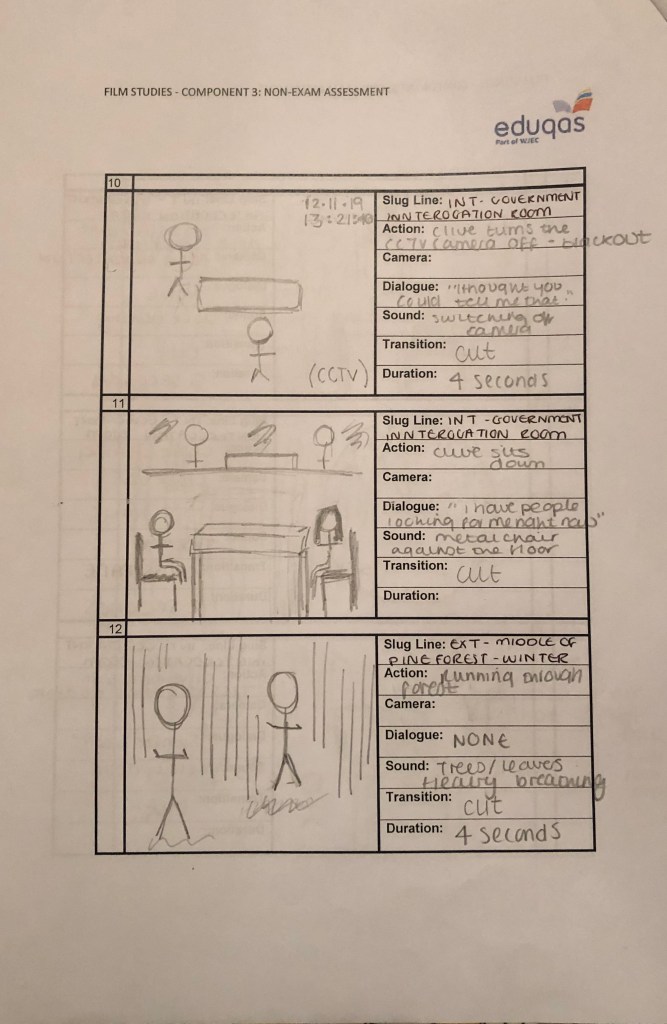 FILM STUDIES - COMPONENT 3: NON-EXAM ASSESSMENT
eduqas
Part of WJEC
10
12.11.19
13:21:40
(CCTV)
Slug Line: INT - GOVERNMENT
INNTEROGATION ROOM
Action: Clive turns the
CCTV camera off - blackout
Camera:
Dialogue: "I thought you
could tell me that."
Sound: switching off
camera
Transition: cut
Duration: 4 seconds
11
Slug Line: INT - GOVERNMENT
INNTEROGATION ROOM
Action: Clive sits
down
Camera:
Dialogue: "I have people
looking for me right now"
Sound: metal chair
against the floor
Transition: cut
Duration:
12
Slug Line: EXT - MIDDLE OF
PINE FOREST - WINTER
Action: Running through
forest
Camera:
Dialogue: NONE
Sound: Trees/leaves
Heavy breathing
Transition: cut
Duration: 4 seconds